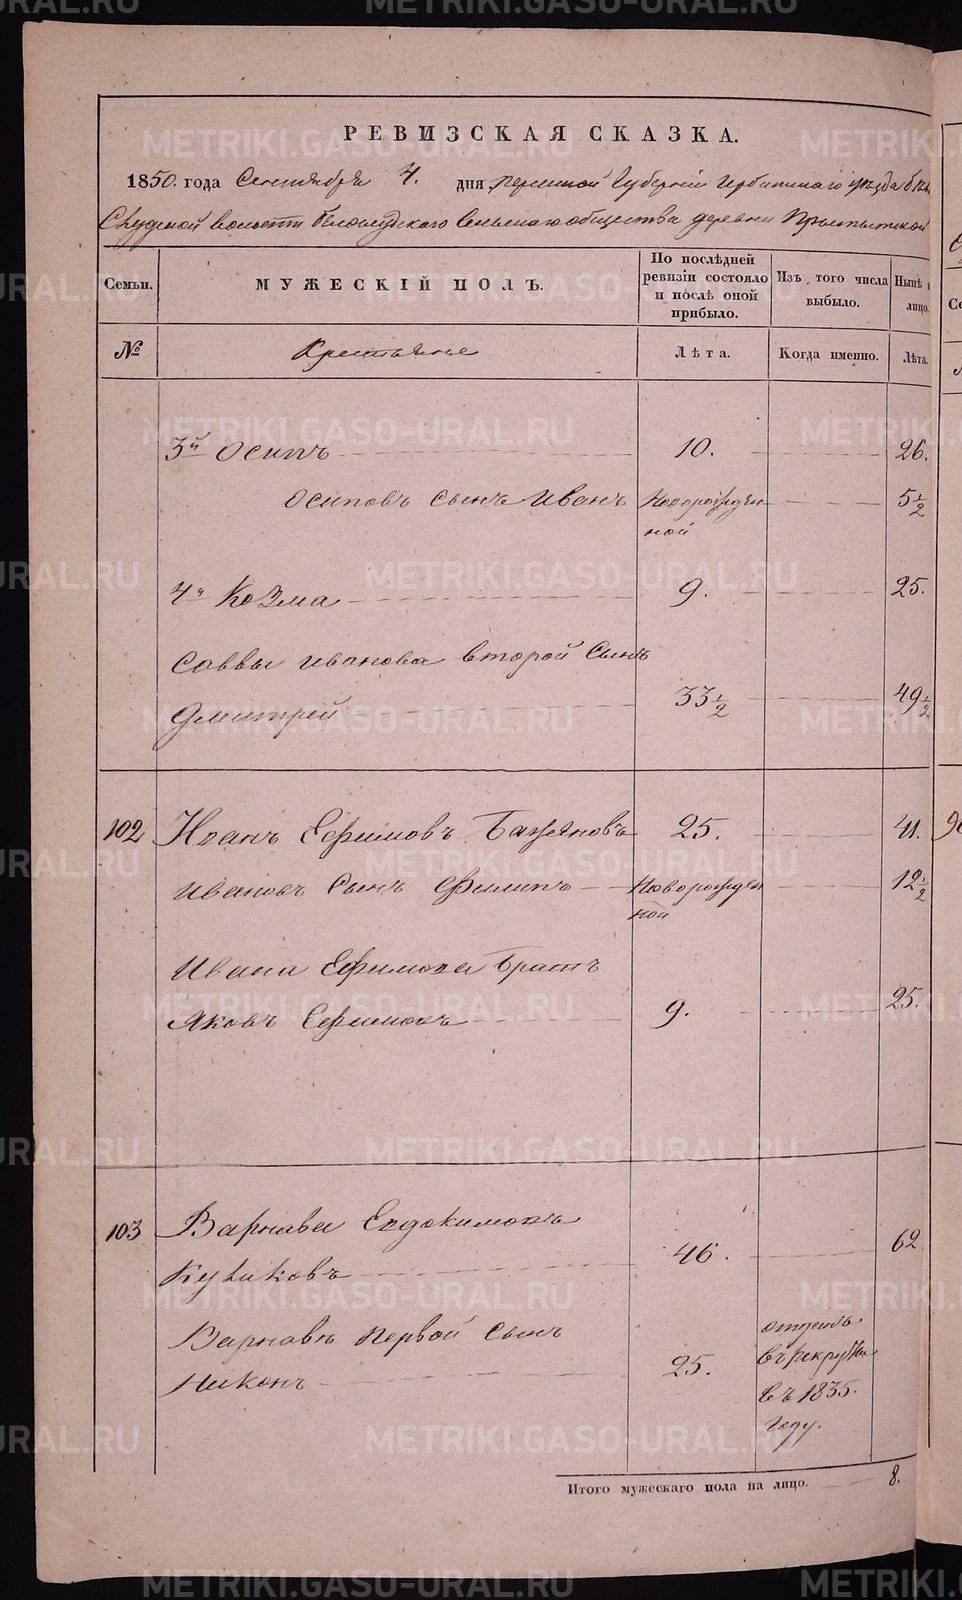 РЕВИЗСКАЯ СКАЗКА.
1850. года Сентября 4. дня, Пермской Губернии Ирбитскаго уѣзда
волости сельскаго общества деревни
Семьи. МУЖЕСКІЙ ПОЛЪ. По послѣдней ревизіи состояло и послѣ оной прибыло. Изъ того числа выбыло. Нынѣ лицо.
№ Крестьяне Лѣта. Когда именно. Лѣта.
3й Осипъ 10. 26.
Осиповъ сынъ Иванъ Новорожден 5 1/2
ной
4й Козма 9. 25.
Саввы Иванова второй Сынъ
Дмитрей 33 1/2 49 1/2
102 Иванъ Ефимовъ Бажановъ 25. 41.
Ивановъ Сынъ Филипъ Новорожден 12 1/2
ной
Ивана Ефимова Братъ
Яковъ Ефимовъ 9. 25.
103 Варнава Евдокимовъ
Куликовъ 46. 62
Варнавы первой сынъ
Никонъ 25.
отданъ
въ рекруты
въ 1835.
году.
Итого мужескаго пола на лицо. 8.
METRIKI.GASO-URAL.RU